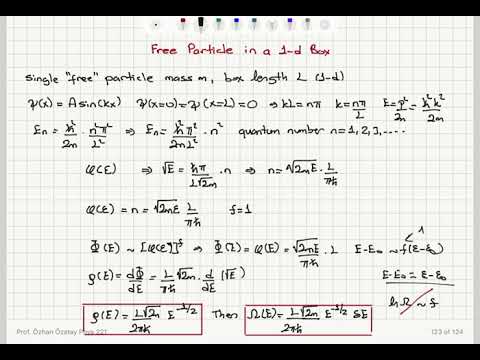 Free Particle in a 1-d Box
single "free" particle mass m, box length L (1-d)
ψ(x) = A sin(kx)   ψ(x=0) = ψ(x=L) = 0 ⇒ kL = nπ   k = nπ/L   E = p²/2m = ħ²k²/2m
Eₙ = ħ²/2m · n²π²/L² ⇒ Eₙ = ħ²π²/2mL² · n²   quantum number n = 1, 2, 3, ....
φ(E) ⇒ √E = ħπ/L√2m · n ⇒ n = √2mE · L/πħ
φ(E) = n = √2mE L/πħ   f=1
Φ(E) ~ [φ(E)]^f ⇒ Φ(E) = φ(E) = √2mE/πħ · L   E-E₀ ~ f(ε-ε₀)   1
ρ(E) = dΦ/dE = L/πħ √2m · d/dE (√E)   E-E₀ = ε-ε₀
ρ(E) = L√2m/2πħ E^-1/2   Then   Ω(E) = L√2m/2πħ E^-1/2 δE   lnΩ ~ f
Prof. Özhan Özatay Phys 221   123 of 124